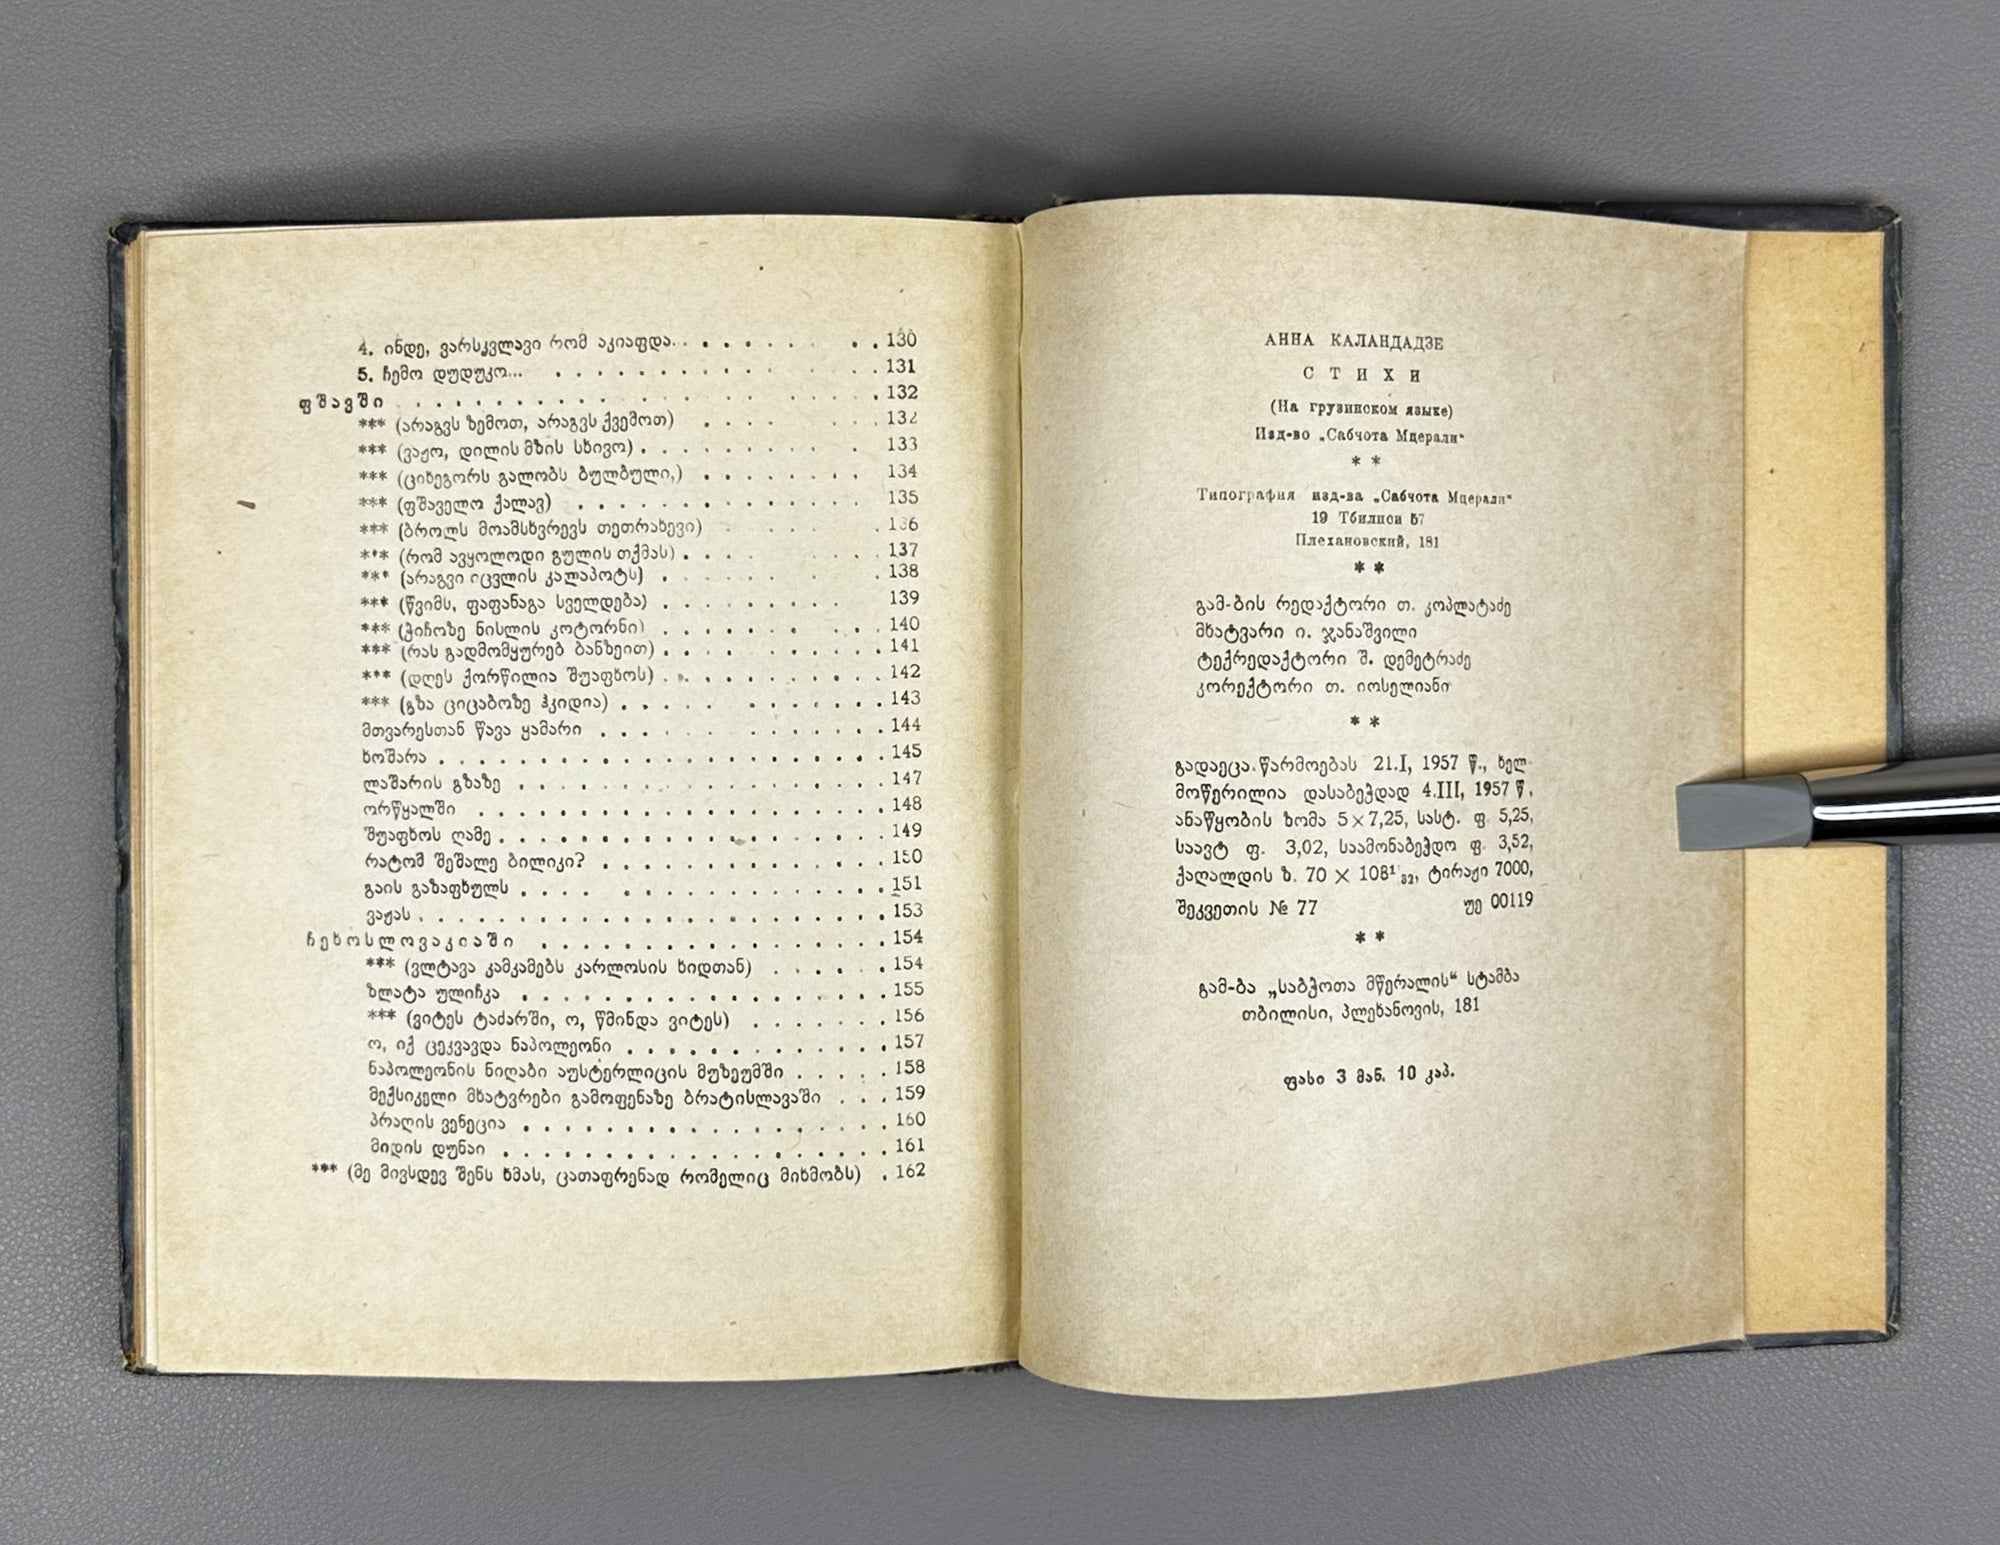 4. ინდე, ვარსკვლავი რომ აკიაფდა. . . . . . . . . . 130
5. ჩემო დუდუკო... . . . . . . . . . . . . . 131
ფშავში . . . . . . . . . . . . . . . . . . 132
*** (არაგვს ზემოთ, არაგვს ქვემოთ) . . . . . . . 132
*** (ვაჟო, დილის მზის სხივო) . . . . . . . . . . 133
*** (ციხეგორს გალობს ბულბული,) . . . . . . . . 134
*** (ფშაველო ქალავ) . . . . . . . . . . . . . 135
*** (ბროლს მოამსხვრევს თეთრახევი) . . . . . 136
*** (რომ ავყოლოდი გულის თქმას) . . . . . . . 137
*** (არაგვი იცვლის კალაპოტს) . . . . . . . . 138
*** (წვიმს, ფაფანაგა სველდება) . . . . . . . . 139
*** (ჭიჩოზე ნისლის კოტორნი) . . . . . . . . . . 140
*** (რას გადმომყურებ ბანზეით) . . . . . . . . . . 141
*** (დღეს ქორწილია შუაფხოს) . . . . . . . . . . 142
*** (გზა ციცაბოზე ჰკიდია) . . . . . . . . . . . . 143
მთვარესთან წავა ყამარი . . . . . . . . . . . 144
ხოშარა . . . . . . . . . . . . . . . . . . . . . . 145
ლაშარის გზაზე . . . . . . . . . . . . . . . . . . 147
ორწყალში . . . . . . . . . . . . . . . . . . . . 148
შუაფხოს ღამე . . . . . . . . . . . . . . . . . . . 149
რატომ შეშალე ბილიკი? . . . . . . . . . . . . . . 150
გაის გაზაფხულს . . . . . . . . . . . . . . . . . 151
ვაჟას . . . . . . . . . . . . . . . . . . . . . . . 153
ჩეხოსლოვაკიაში . . . . . . . . . . . . . . . . . 154
*** (ვლტავა კამკამებს კარლოსის ხიდთან) . . . . . . 154
ზლატა ულიჩკა . . . . . . . . . . . . . . . . . . 155
*** (ვიტეს ტაძარში, ო, წმინდა ვიტეს) . . . . . . . 156
ო, იქ ცეკვავდა ნაპოლეონი . . . . . . . . . . . . . 157
ნაპოლეონის ნიღაბი აუსტერლიცის მუზეუმში . . . . . 158
მექსიკელი მხატვრები გამოფენაზე ბრატისლავაში . . . 159
პრაღის ვენეცია . . . . . . . . . . . . . . . . . . 160
მიდის დუნაი . . . . . . . . . . . . . . . . . . . 161
*** (მე მივსდევ შენს ხმას, ცათაფრენად რომელიც მიხმობს) . 162
АННА КАЛАНДАДЗЕ
СТИХИ
(На грузинском языке)
Изд-во „Сабчота Мцерали“
* *
Типография изд-ва „Сабчота Мцерали“
19 Тбилиси 57
Плехановский, 181
* *
გამ-ბის რედაქტორი თ. კოპლატაძე
მხატვარი ი. ჯანაშვილი
ტექრედაქტორი შ. დემეტრაძე
კორექტორი თ. იოსელიანი
* *
გადაეცა წარმოებას 21.I, 1957 წ., ხელ-
მოწერილია დასაბეჭდად 4.III, 1957 წ,
ანაწყობის ზომა 5×7,25, სასტ. ფ. 5,25,
საავტ ფ. 3,02, საამონაბეჭდო ფ. 3,52,
ქაღალდის ზ. 70 × 108¹ ₃₂, ტირაჟი 7000,
შეკვეთის № 77 უე 00119
* *
გამ-ბა „საბჭოთა მწერალის“ სტამბა
თბილისი, პლეხანოვის, 181
ფასი 3 მან. 10 კაპ.